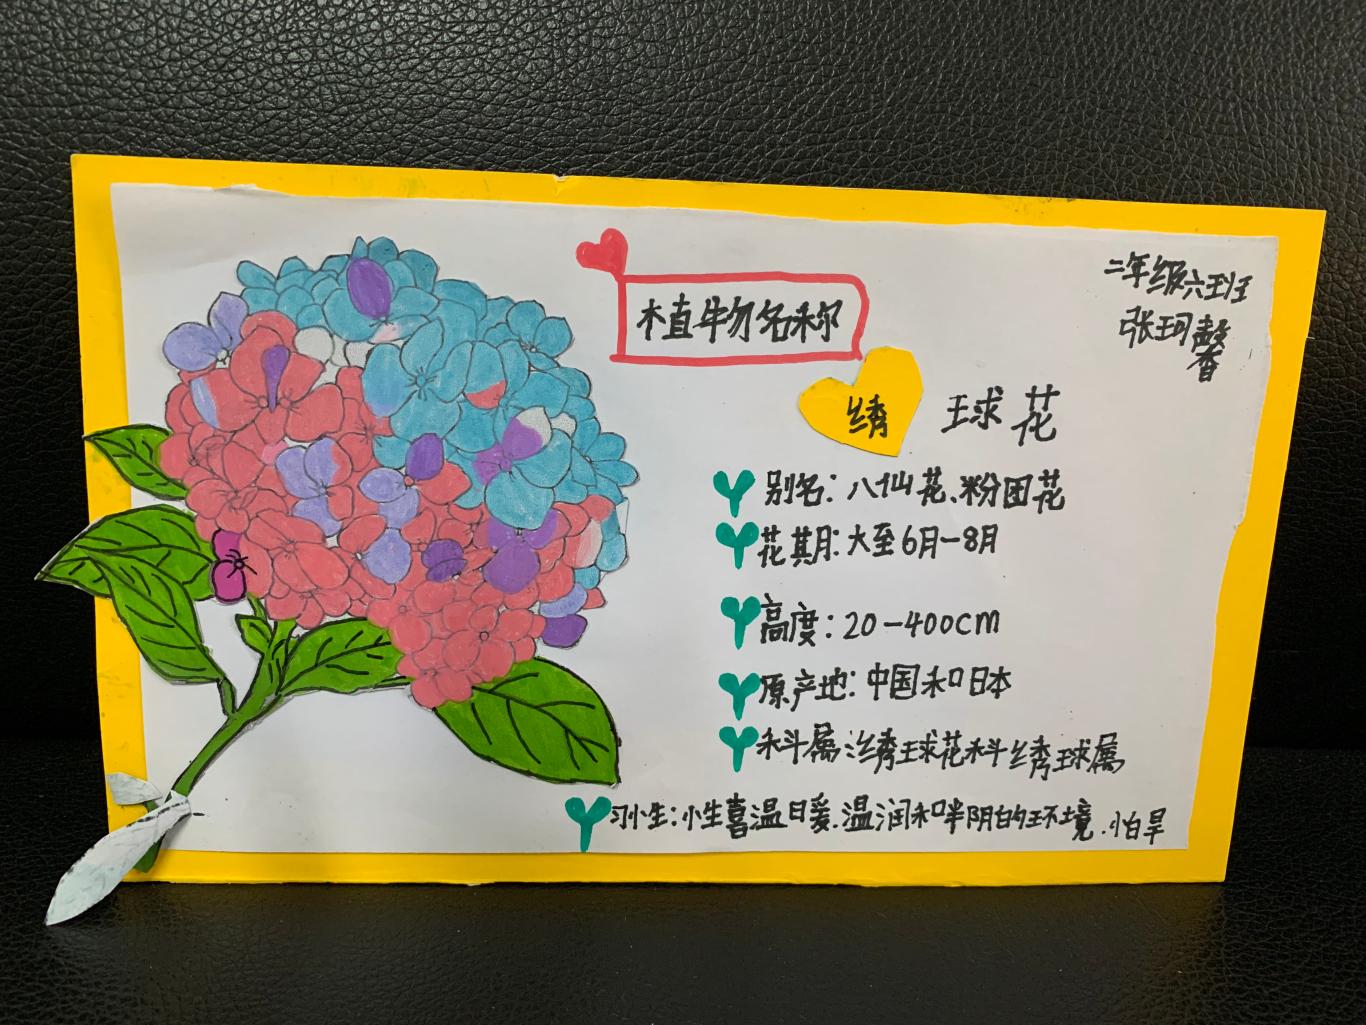 二年级六班
张珂馨
植物名称
绣球花
别名：八仙花、粉团花
花期：大至6月-8月
高度：20-400cm
原产地：中国和日本
科属：绣球花科绣球属
习小生：小生喜温日爰.温润和半阴的环境.怕旱